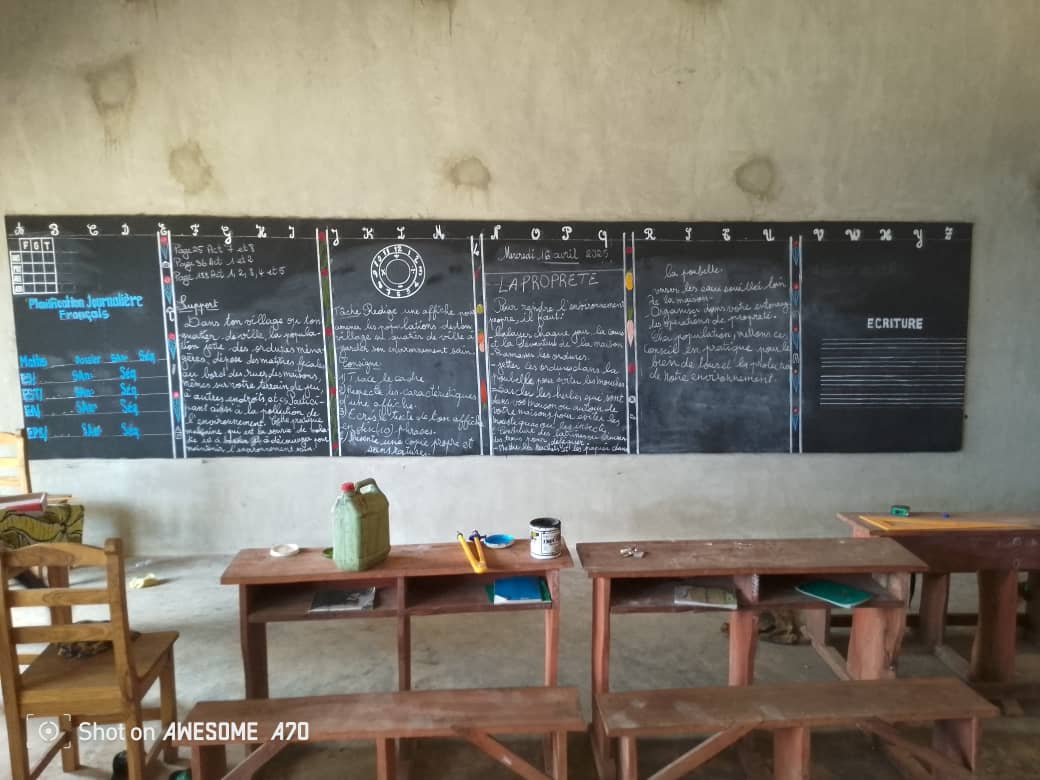 A B C D E F G H I J K L M N O P Q R S T U V W X Y Z
F G T
Planification Journalière
Français
Maths Dossier SA: Séq
ES/ SA: Séq
EST/ SA: Séq
EA/ SA: Séq
EPS/ SA: Séq
Page 25 Act 7 et 8
Page 36 Act 1 et 2
Page 133 Act 1, 2, 3, 4 et 5
Support
Dans ton village ou ton
quartier de ville, la popula-
tion jette des ordures ména
gères, dépose des matières fécales
au bord des rues, des maisons,
mêmes sur votre terrain de jeu
à autres endroits et
nant ainsi à la pollution de
l'environnement. Cette pratique
qui est la source de
et à décourager pour
maintenir l'environnement sain.
12 11
Tâche : Rédige une affiche pour
amener les populations de ton
village et quartier de ville à
garder son environnement sain.
Consigne
1) Trace le cadre
2) Respecte les caractéristiques
d'une affiche.
3) Ecris le texte de ton affiche
en dix (10) phrases.
4) Présente une copie propre et
sans ratures.
Mercredi 16 avril 2025
LA PROPRETE
Pour rendre l'environnement
propre, il faut:
balayer chaque jour la cour
et la devanture de la maison
Ramasser les ordures.
jetter les ordures dans la
poubelle pour éviter les mouches
Sarcler les herbes qui sont
dans vos maison ou autour de
votre maisons pour éviter les
moustiques ou les insectes
la poubelle.
verser les eau souillée loin
de la maison.
Organiser dans votre entourage
les opérations de propreté.
Cher population, mettons ces
conseil en pratique pour le
bien de tous et la protection
de notre environnement.
ECRITURE
Shot on AWESOME A70